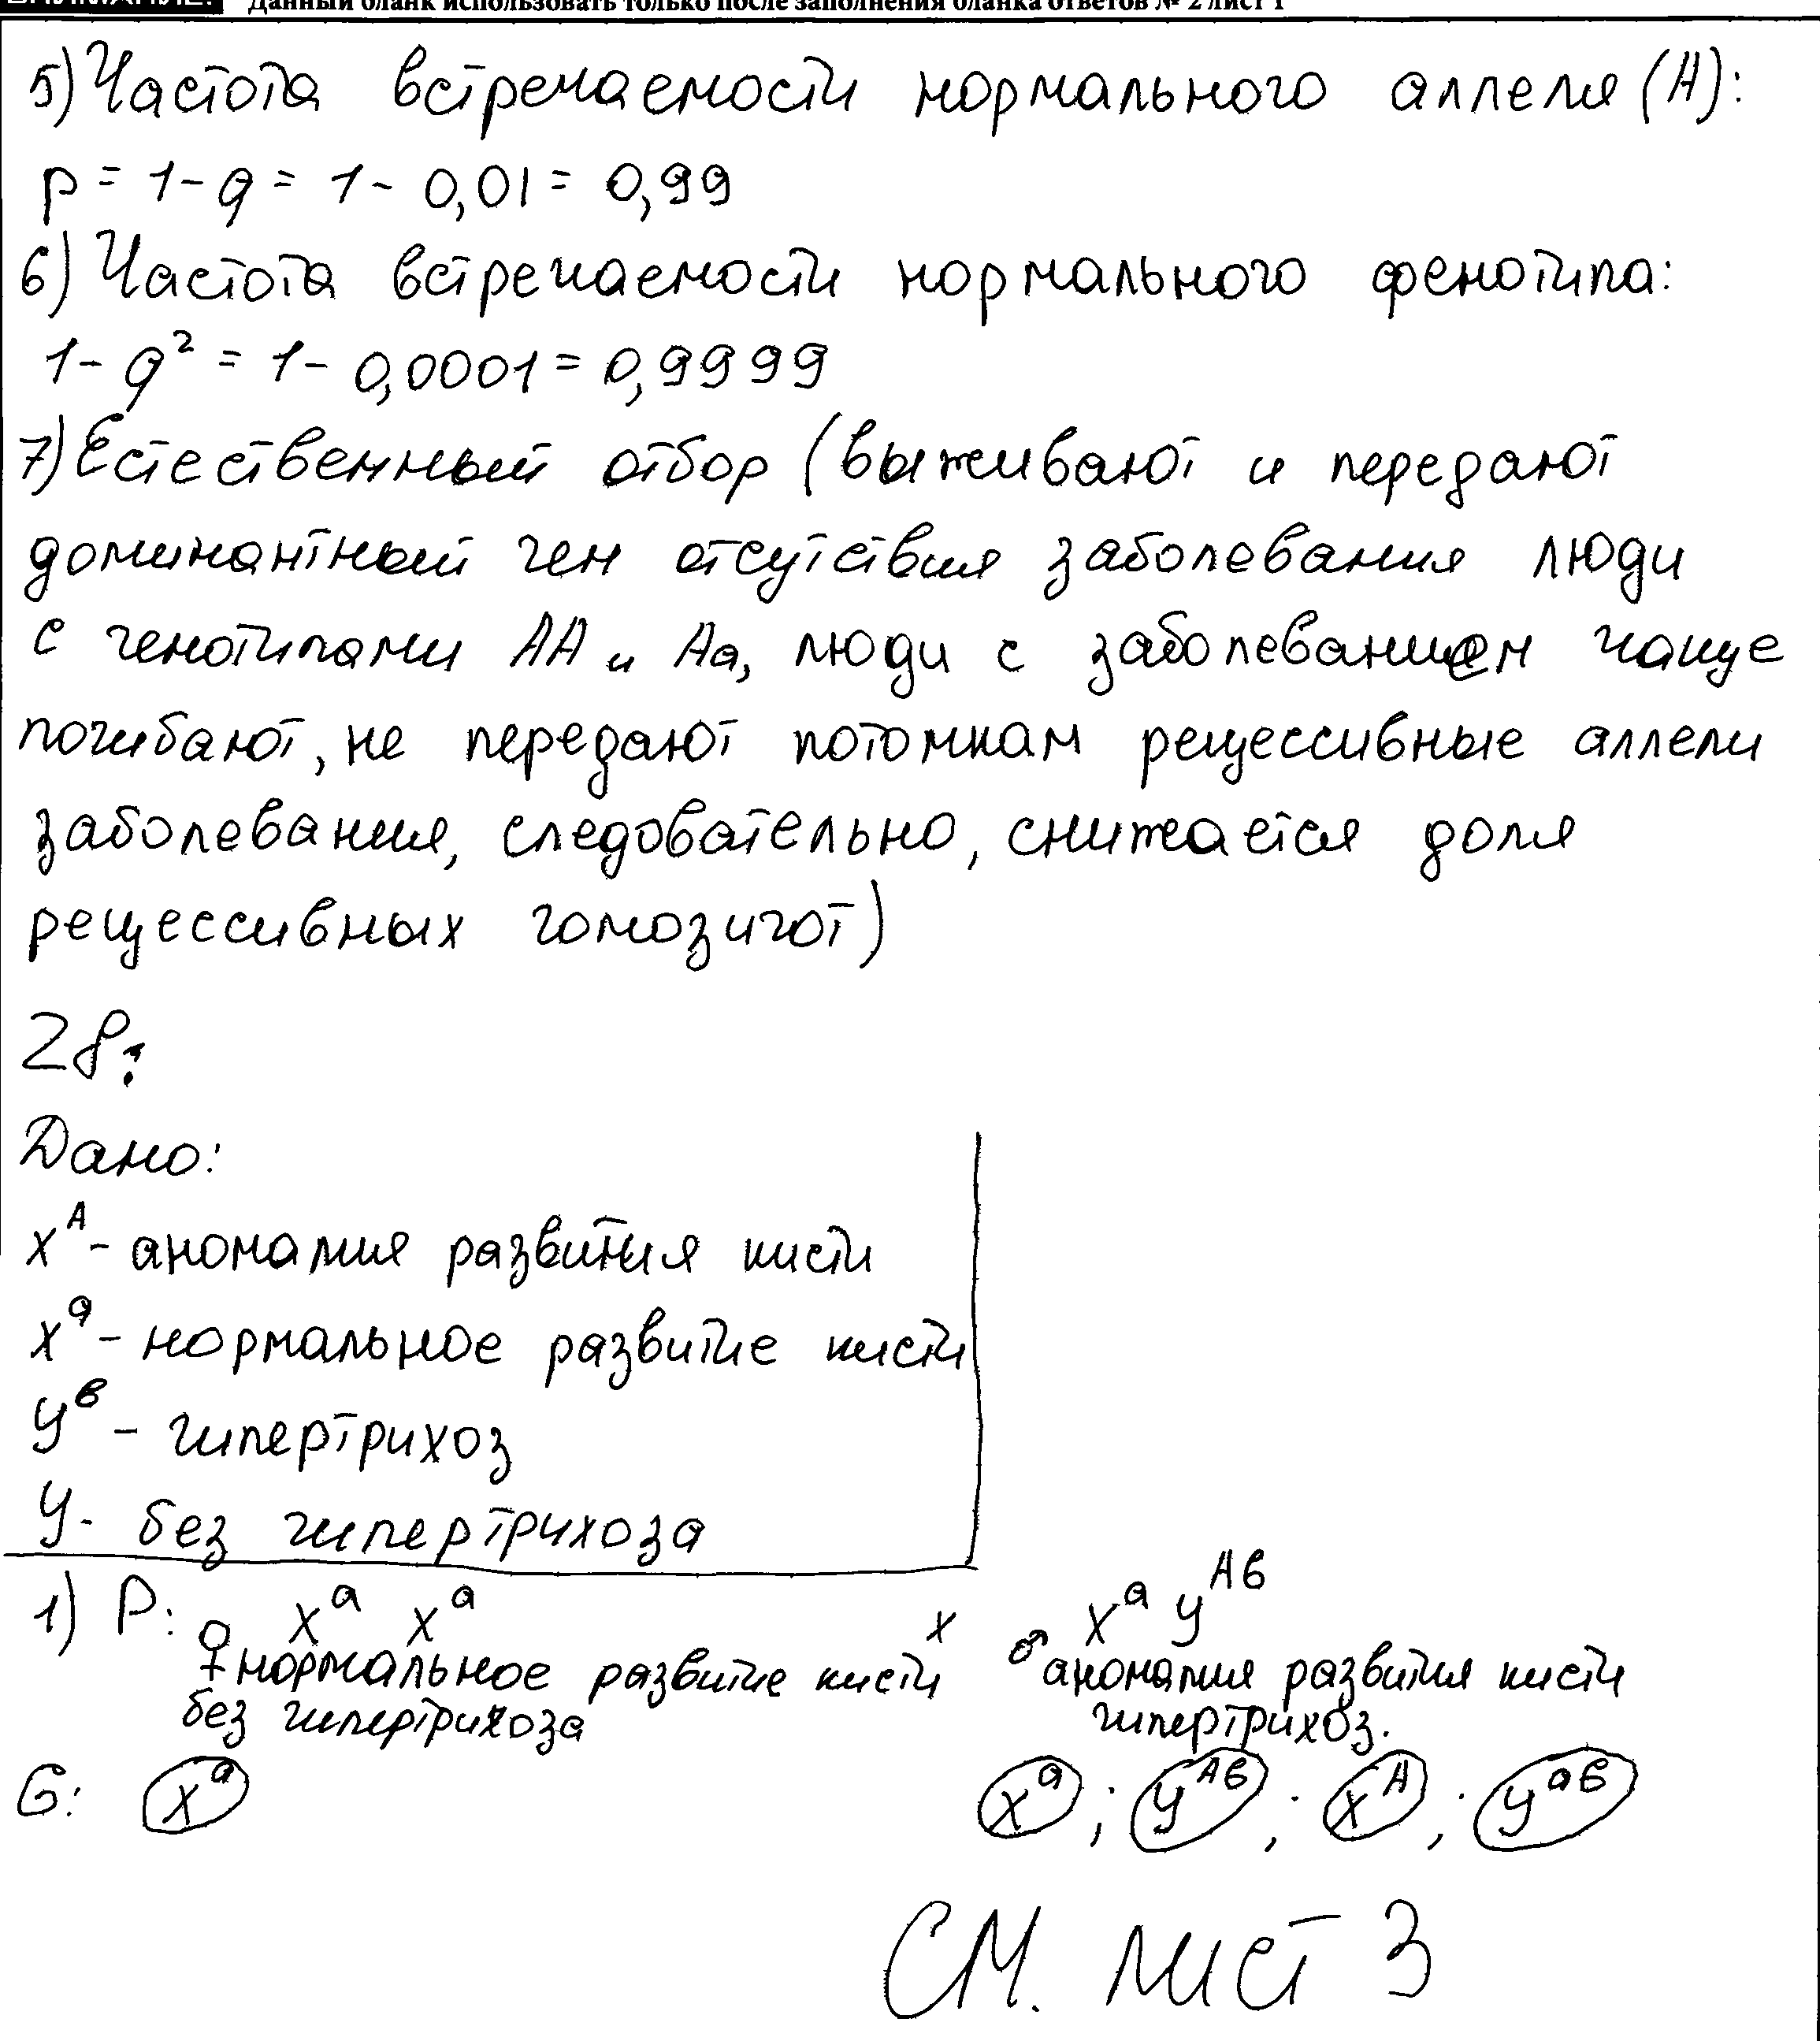 Данный бланк использовать только после заполнения бланка ответов № 2 лист 1
5) Частота встречаемости нормального аллеля (А):
p = 1 - q = 1 - 0,01 = 0,99
6) Частота встречаемости нормального фенотипа:
1 - q² = 1 - 0,0001 = 0,9999
7) Естественный отбор (выживают и передают
доминантный ген отсутствия заболевания люди
с генотипами АА и Аа, люди с заболеванием чаще
погибают, не передают потомкам рецессивные аллели
заболевания, следовательно, снижается доля
рецессивных гомозигот)
28.
Дано:
Xᴬ - аномалия развития кисти
Xᵃ - нормальное развитие кисти
Yᵇ - гипертрихоз
Y - без гипертрихоза
1) P: ♀ Xᵃ Xᵃ x ♂ Xᵃ Yᴬᵇ
нормальное развитие кисти аномалия развития кисти
без гипертрихоза гипертрихоз.
G: Xᵃ Xᵃ ; Yᴬᵇ ; Xᴬ ; Yᵃᵇ
СМ. лист 3